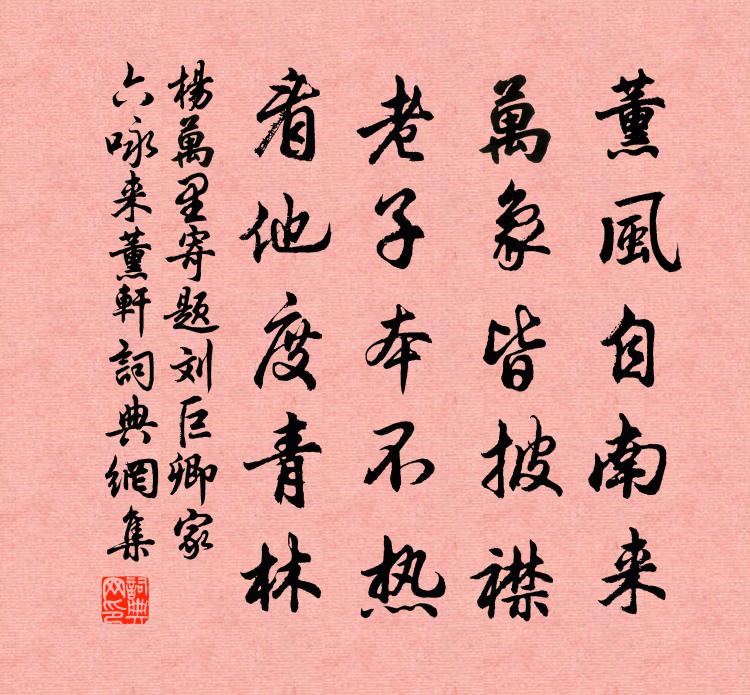 薰風自南来
萬象皆披襟
老子本不热
看他度青林
楊萬里寄题刘巨卿家
六咏来薰軒詞典網集
詞典網印